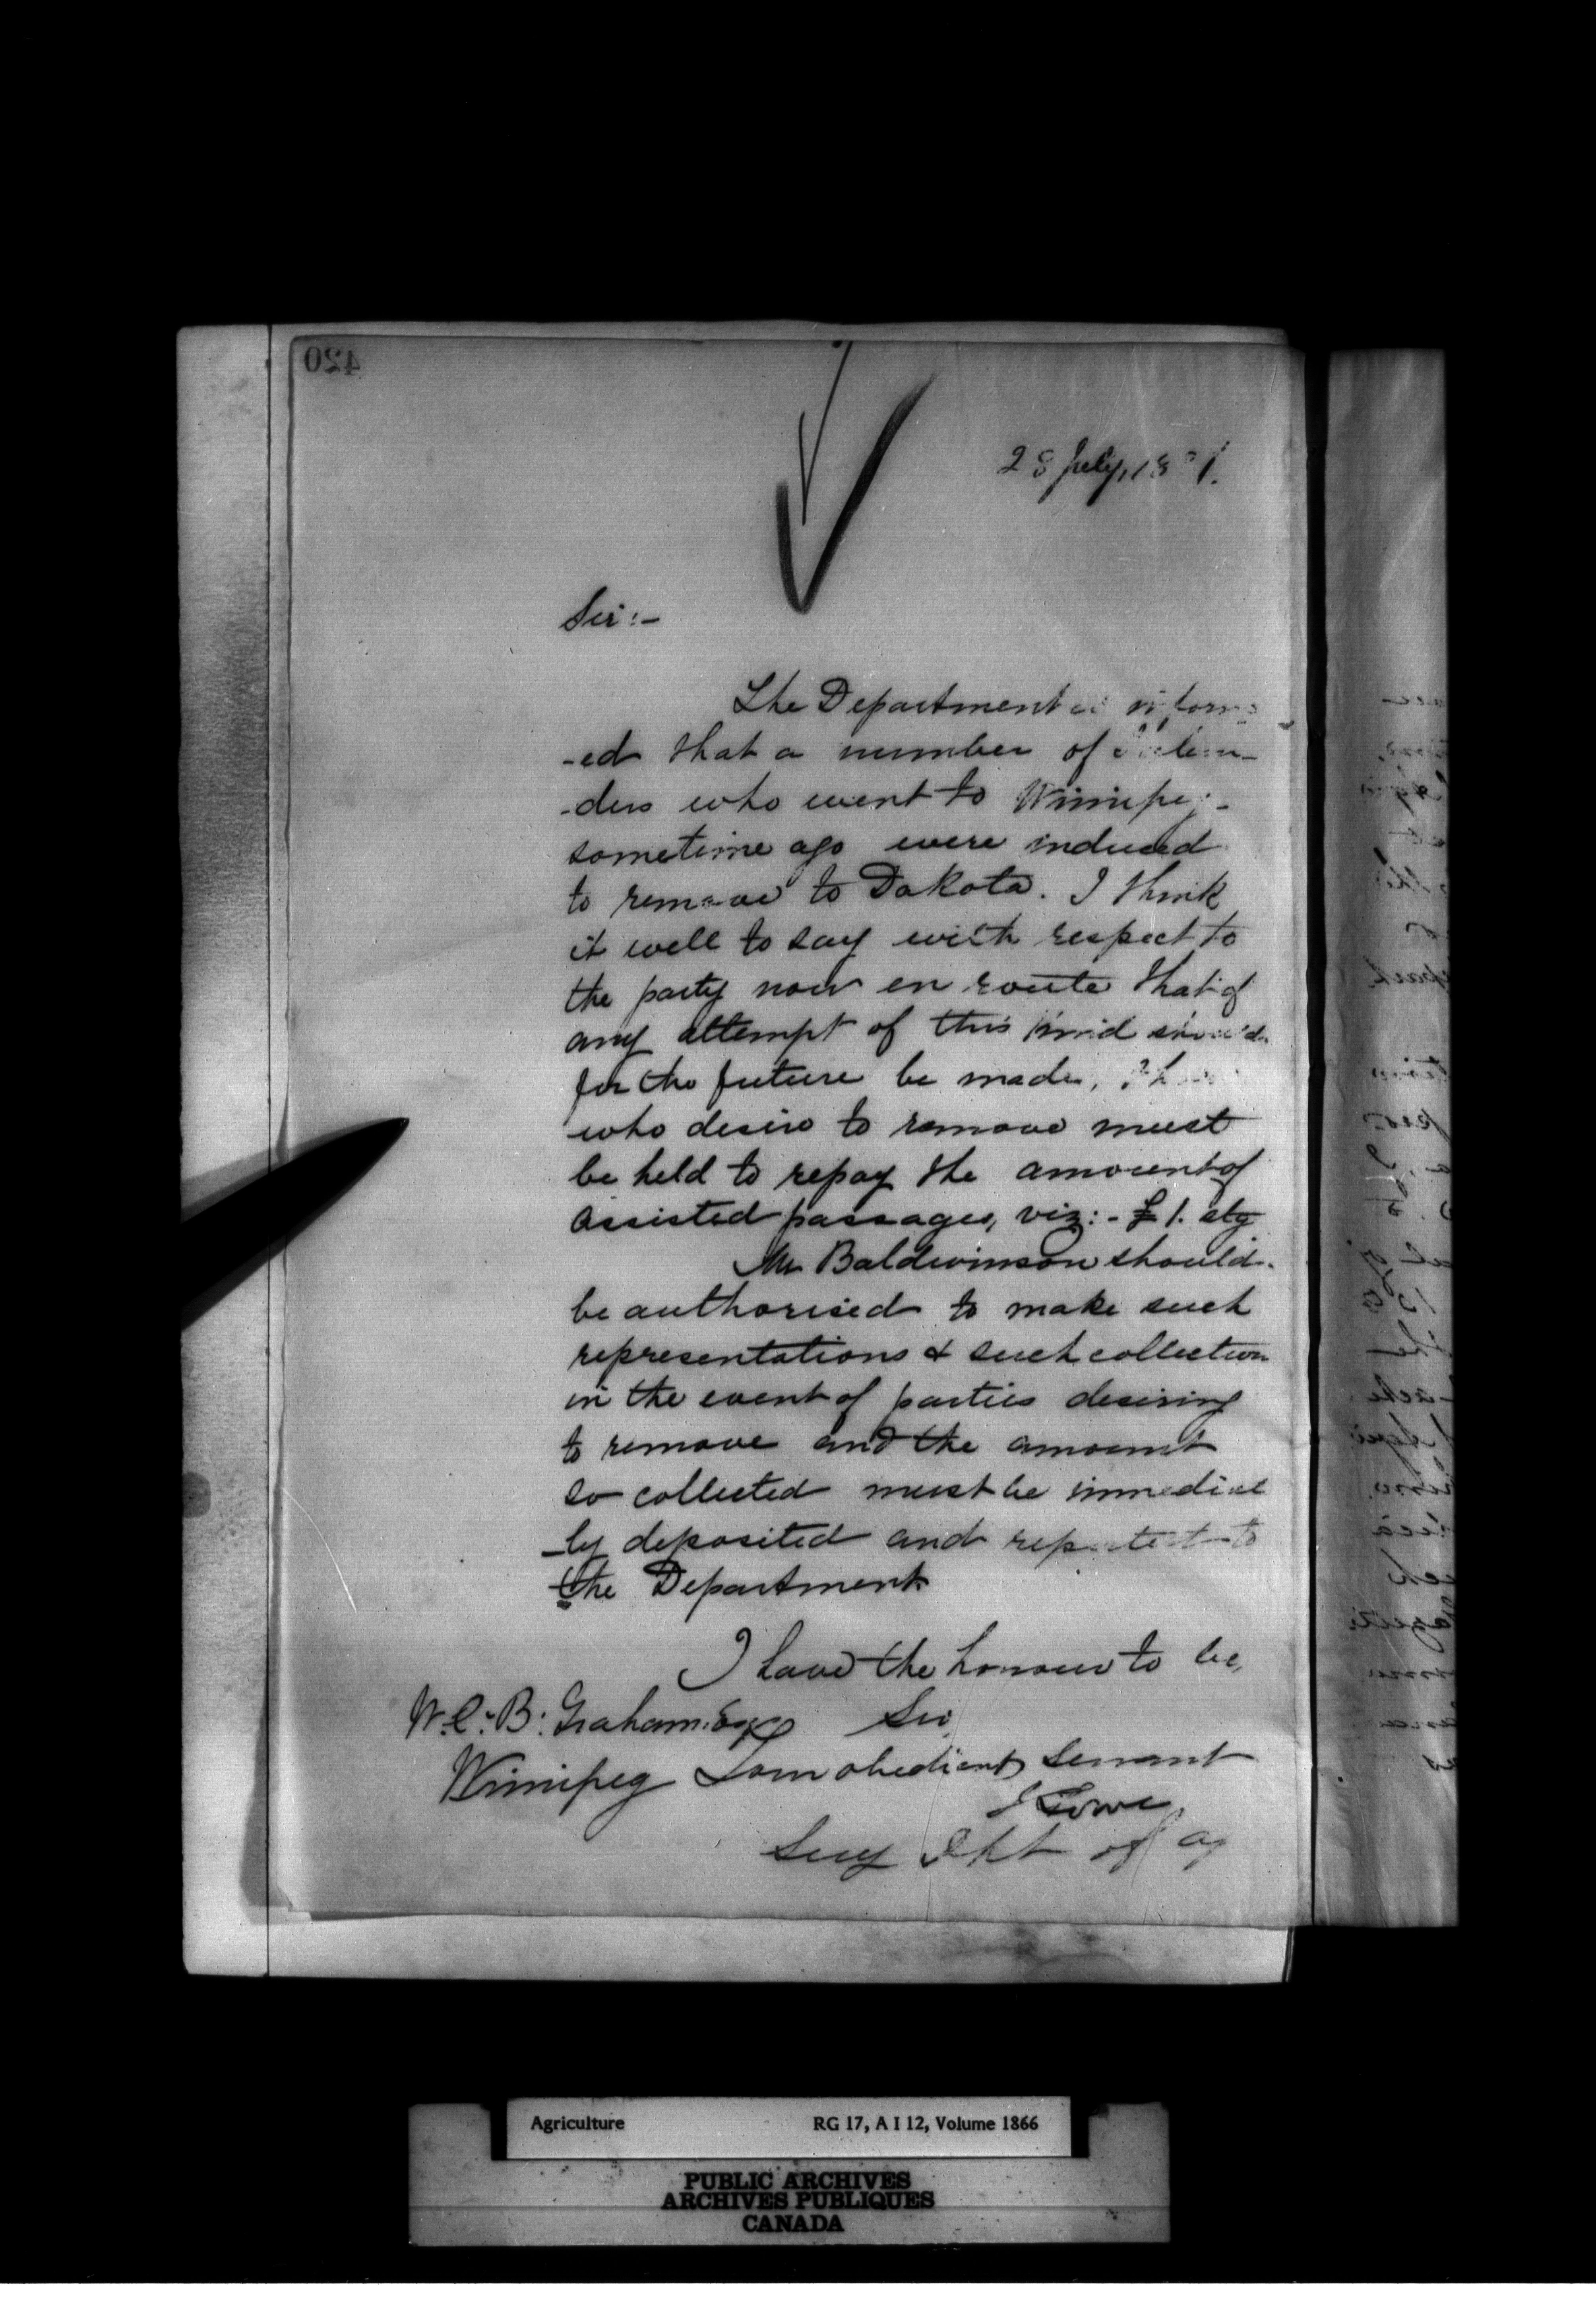 420
28 July, 18
Sir:-
The Department is inform
-ed that a number of
-ders who went to Winnipeg
sometime ago were induced
to remove to Dakota. I think
it well to say with respect to
the party now en route that if
any attempt of this kind should
for the future be made,
who desire to remove must
be held to repay the amount of
assisted passages, viz:- £1. stg
Mr Baldwinson should
be authorised to make such
representations & such collection
in the event of parties desiring
to remove and the amount
so collected must be immediate
-ly deposited and reported to
the Department
I have the honour to be,
W.C.B. Graham Esq Sir
Winnipeg Your obedient servant
J Lowe
Secy Dpt of Ag
Agriculture RG 17, A I 12, Volume 1866
PUBLIC ARCHIVES
ARCHIVES PUBLIQUES
CANADA